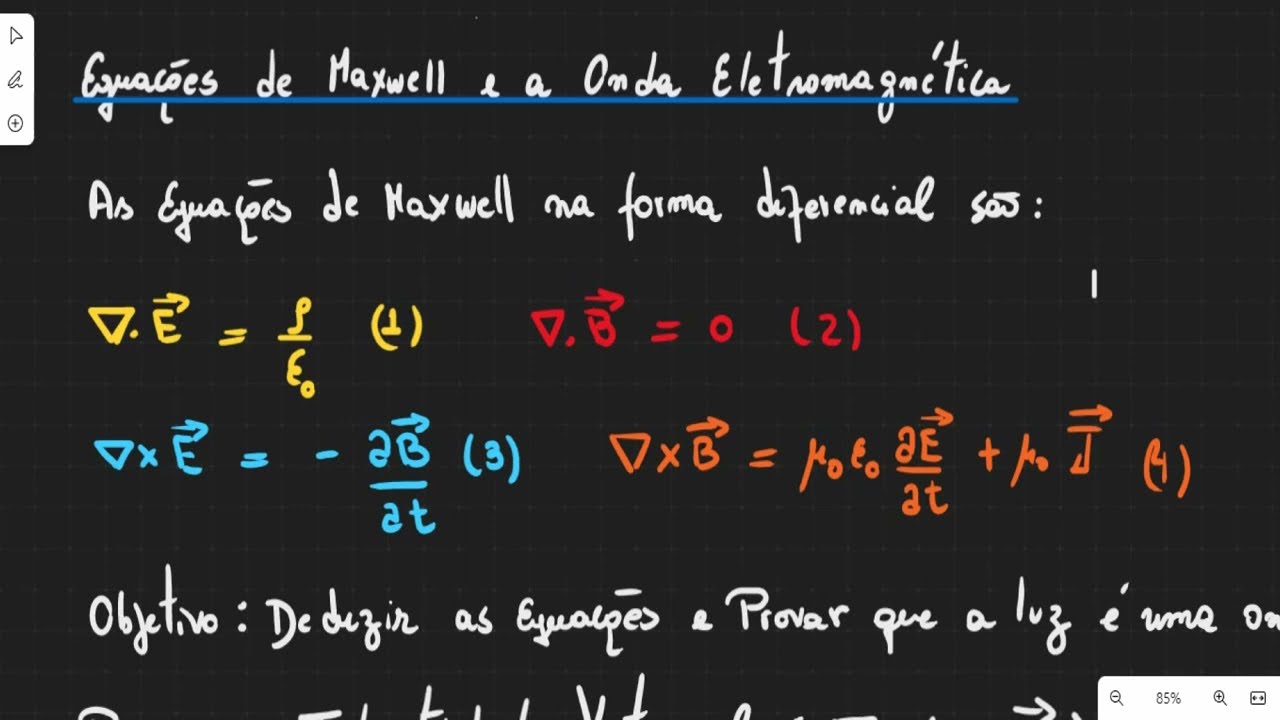 Equações de Maxwell e a Onda Eletromagnética
As Equações de Maxwell na forma diferencial são:
∇.E⃗ = ρ/ε₀ (1) ∇.B⃗ = 0 (2)
∇×E⃗ = - ∂B⃗/∂t (3) ∇×B⃗ = μ₀ε₀ ∂E⃗/∂t + μ₀ J⃗ (4)
Objetivo: Deduzir as Equações e Provar que a luz é uma on
85%